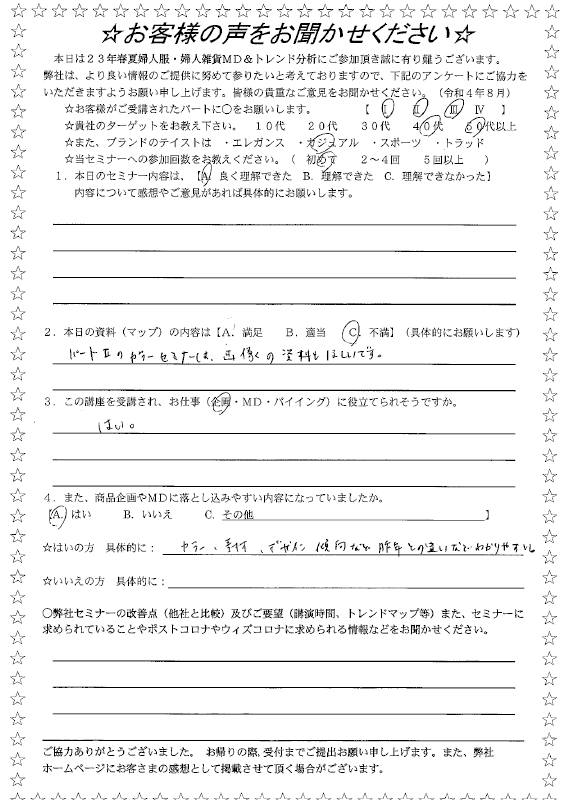 ☆お客様の声をお聞かせください☆
本日は２３年春夏婦人服・婦人雑貨ＭＤ＆トレンド分析にご参加頂き誠に有り難うございます。
弊社は、より良い情報のご提供に努めて参りたいと考えておりますので、下記のアンケートにご協力を
いただきますようお願い申し上げます。皆様の貴重なご意見をお聞かせください。（令和４年８月）
☆お客様がご受講されたパートに○をお願いします。　【　Ⅰ　Ⅱ　Ⅲ　Ⅳ　】
☆貴社のターゲットをお教え下さい。　１０代　２０代　３０代　４０代　５０代以上
☆また、ブランドのテイストは　・エレガンス　・カジュアル　・スポーツ　・トラッド
☆当セミナーへの参加回数をお教えください。（　初めて　２～４回　５回以上　）
１．本日のセミナー内容は、【A. 良く理解できた　B. 理解できた　C. 理解できなかった】
内容について感想やご意見があれば具体的にお願いします。
２．本日の資料（マップ）の内容は【A. 満足　B. 適当　C. 不満】（具体的にお願いします）
パートⅡのカラーセミナーは、画像の資料もほしいです。
３．この講座を受講され、お仕事（企画・ＭＤ・バイイング）に役立てられそうですか。
はい。
４．また、商品企画やＭＤに落とし込みやすい内容になっていましたか。
【A. はい　B. いいえ　C. その他　】
☆はいの方　具体的に：　カラー、素材、デザイン傾向など昨年との違いなどわかりやすい
☆いいえの方　具体的に：
○弊社セミナーの改善点（他社と比較）及びご要望（講演時間、トレンドマップ等）また、セミナーに
求められていることやポストコロナやウィズコロナに求められる情報などをお聞かせください。
ご協力ありがとうございました。　お帰りの際、受付までご提出お願い申し上げます。また、弊社
ホームページにお客さまの感想として掲載させて頂く場合がございます。